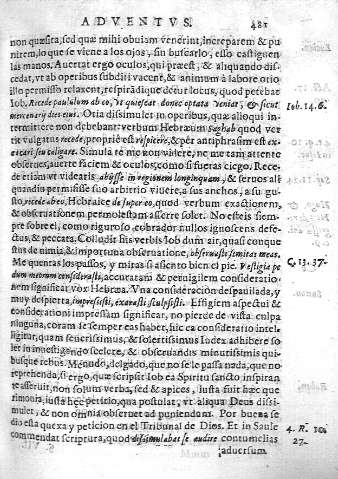 ADVENTVS. 481
non quæsita, sed quæ mihi obuiam venerint, increparem & pu
nirem, lo que se viene a los ojos, sin buscarlo, esso castiguen
las manos. Auertat ergo oculos, qui præest, & aliquando dis
cedat, vt ab operibus subditi vacent, & animum à labore otio
illo permisso relaxent, respirádique detur locus, quod petebat
Iob. Recede paululum ab eo, vt quiescat donec optata veniat, & sicut
mercenarij dies eius. Otia dissimulet in operibus, quæ alioqui in
termittere non debebant: verbum Hebræum saghab quod ver
tit vulgatus recede, proprie est respicere, & per antiphrasim est ex
cæcari seu caligare. Simula té me non videre, ne me tam attentè
obserues, auerte faciem & oculos, como si fueras ciego. Rece-
de etiam vt videaris abijsse in regionem longinquam, & seruos ali
quandiu permisisse suo arbitrio viuere, a sus anchos, a su gu-
sto, recede ab eo, Hebraicè de super eo, quod verbum exactionem,
& obseruationem permolestam asserre solet. No esteis siem-
pre sobre el, como riguroso cobrador nullos ignoscens defe-
ctus, & peccata. Colludit his verbis Iob dum air, quasi conque
stus de nimia, & importuna obseruatione, obseruasti semitas meas.
Me quentas los passos, y miras si asiento bien el pie. Vestigia pe
dum meorum considerasti, accuratam & peruigilem consideratio-
nem significat vox Hebræa. Vna consideracion despauilada, y
muy despierta, impressisti, exarasti sculpsisti. Effigiem aspectui &
considerationi impressam significat, no pierde de vista culpa
ninguna, coram te semper eas habes, hic ea consideratio intelé
ligitur, quam seueriores, & solertissimus Iudex adhibere so
let in inuestigando scelere, & obseruandis minutissimis qui-
busque rebus. Menudo, delgado, que no se le passa nada, que no
reprehenda, si ergo, quæ scripsit Iob ea Spiritu sancto inspiran
te asseruit, non solum verba, sed & apices, iusta fuit hæc que-
rimonia, iusta hæc petitio, qua postulat, vt aliqua Deus dissi-
mulet, & non omnia obseruet ad puniendam. Por buena se
dio esta quexa y peticion en el Tribunal de Dios. Et in Saule
commendat scriptura, quod dissimulabat se audire contumelias
aduersum
Iob. 14. 6.
C. 13. 37-
4. R. 10.
27-